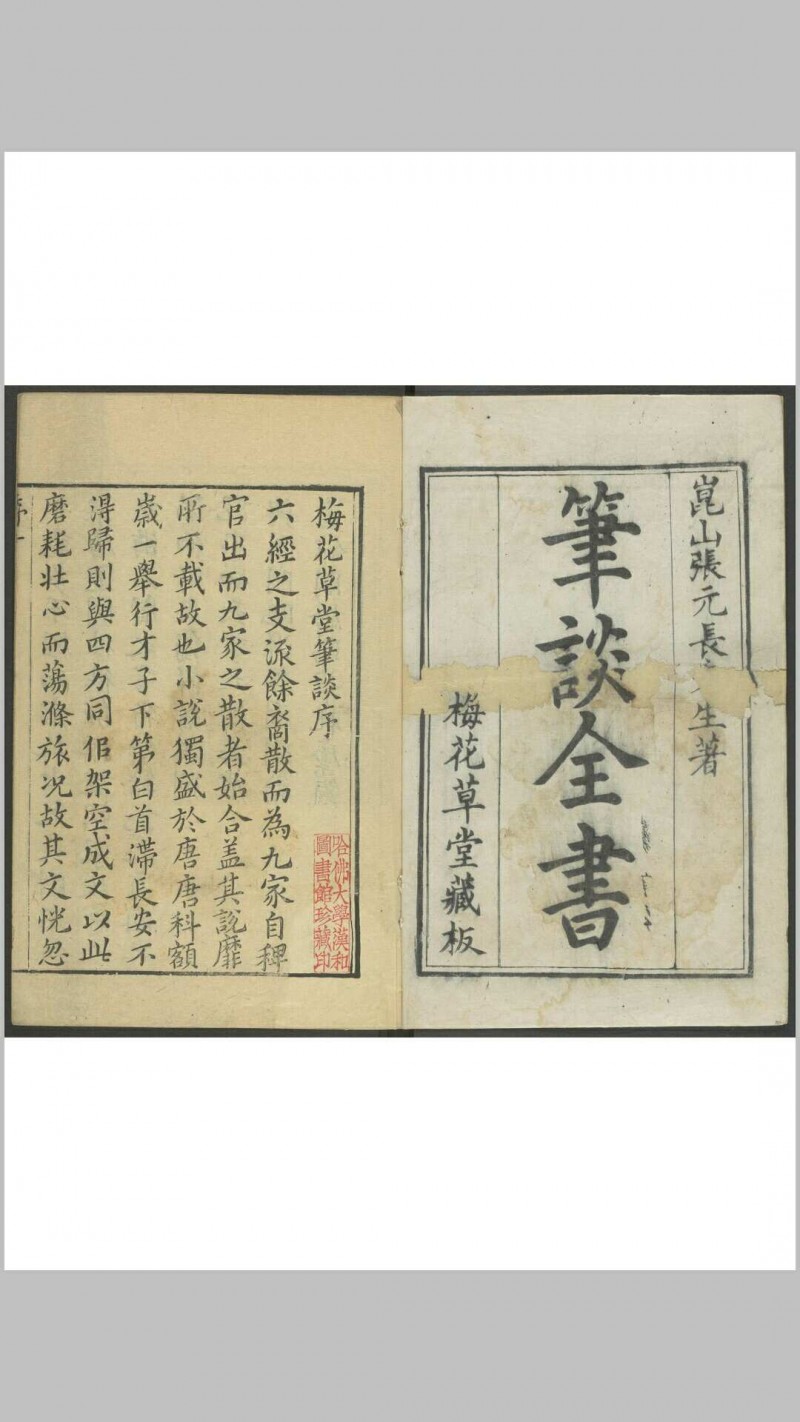 崑山張元長先生著
筆談全書
梅花草堂藏板
梅花草堂筆談序
六經之支派餘裔散而為九家自稗
官出而九家之散者始合蓋其說靡
所不載故也小說獨盛於唐唐科額
歲一舉行才子下第白首滯長安不
得歸則與四方同侶架空成文以此
磨耗壯心而蕩滌旅况故其文恍忽
序一
哈佛大學漢和
圖書館珍藏印